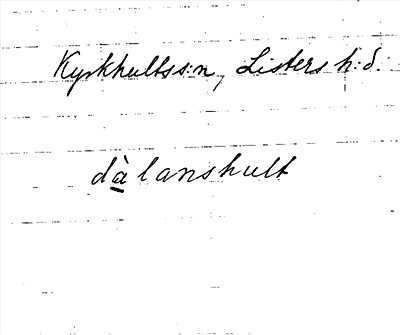 Kyrkhults s:n, Listers h:d.
dàlanshult